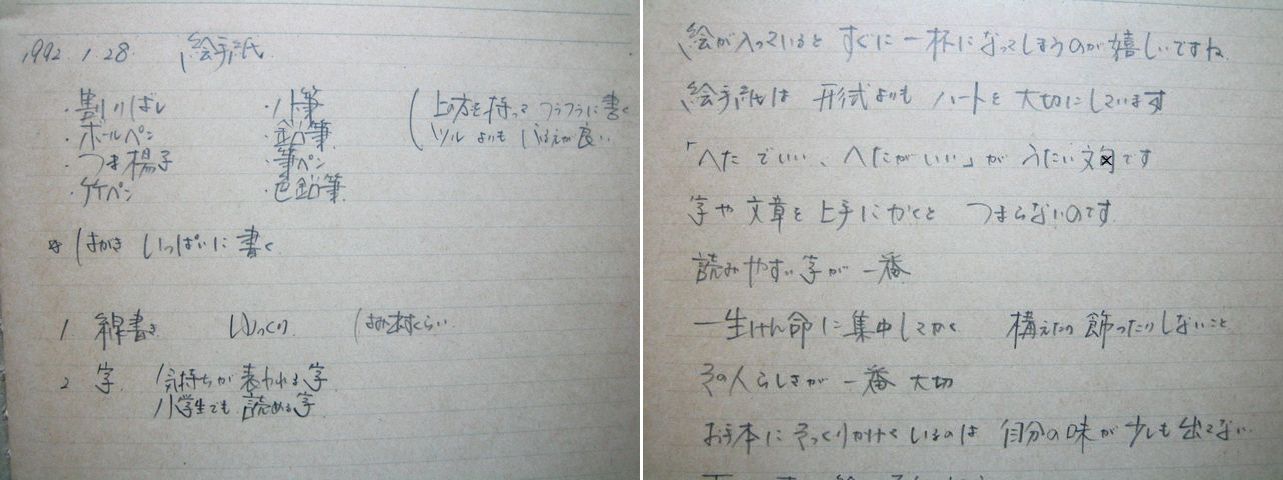 1992.1.28 絵手紙
・割りばし ・小筆 (上の方を持って フラフラに書く
・ボールペン ・鉛筆 ツルよりも ふるえが良い
・つま楊子 ・筆ペン
・竹ペン ・色鉛筆
はがき いっぱいに 書く
1 線書き ゆっくり はみ出すくらい
2 字 気持ちが表われる字
小学生でも読める字
絵が入っていると すぐに一杯になってしまうのが嬉しいですね
絵手紙は 形式よりも ハートを 大切にしています
「へたでいい、へたがいい」が うたい文句です
字や文章を上手にかくと つまらないのです
読みやすい字が 一番
一生けん命に集中してかく 構えたり飾ったりしないこと
その人らしさが 一番 大切
お手本に そっくりかけているのは 自分の味が少しも出てない